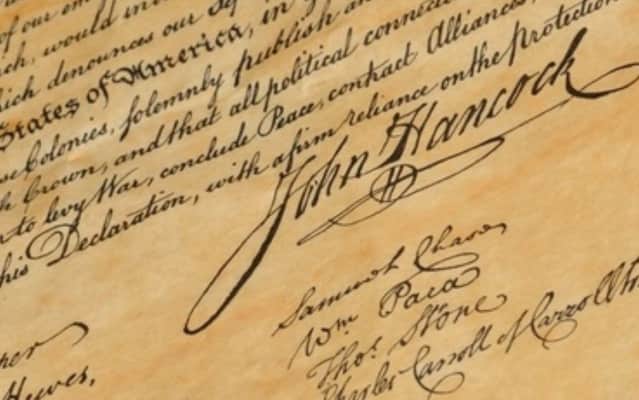 of our em
ch, would in
ich denounces our Sep
States of America, in
se Colonies, solemnly publish an
h Crown, and that all political connec
to levy War, conclude Peace, contract Alliances,
his Declaration, with a firm reliance on the protection
John Hancock
Samuel Chase
Wm Paca
Thos. Stone
Charles Carroll of Carrollto
per
Hewes,